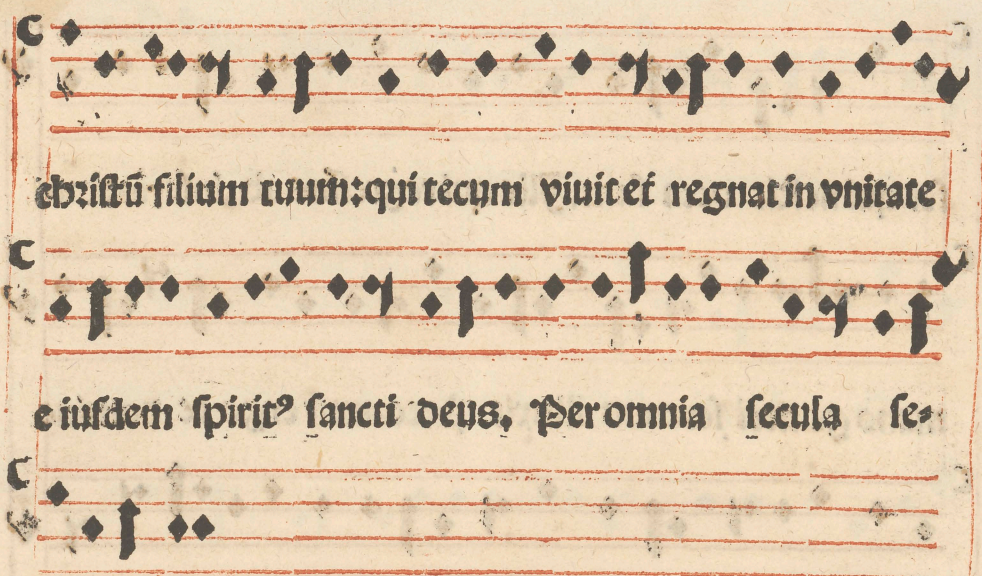 chriſtū filium tuum:qui tecum viuit et regnat in vnitate
e iuſdem ſpiritꝰ ſancti deus. Per omnia ſecula ſe⸗